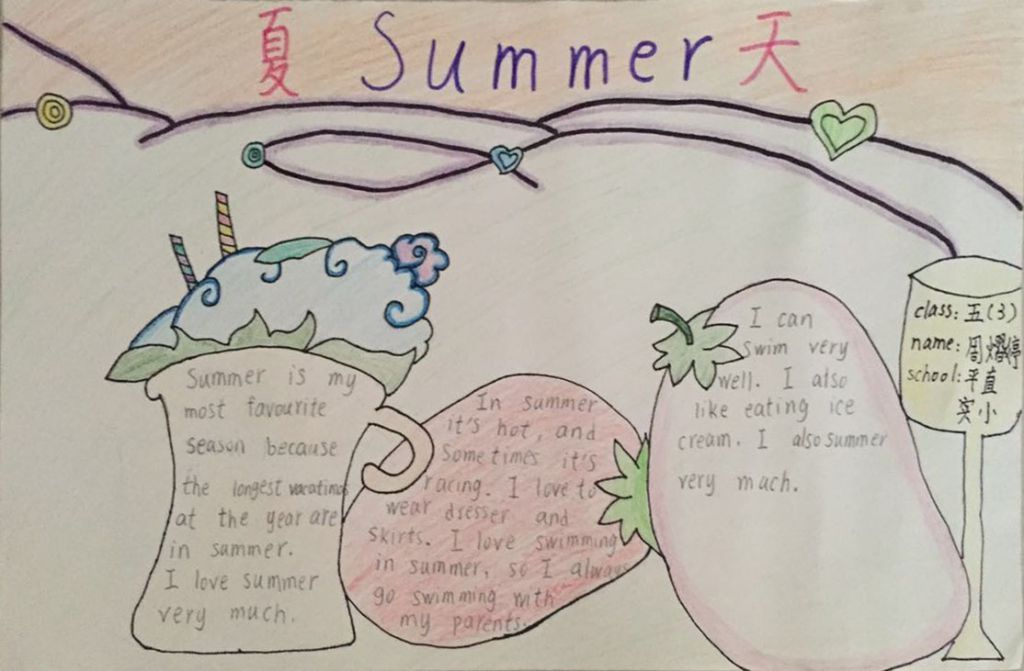 夏 Summer 天
Summer is my
most favourite
season because
the longest vacations
at the year are
in summer.
I love summer
very much.
In summer
it's hot, and
Sometimes it's
racing. I love to
wear dresser and
skirts. I love swimming
in summer, so I always
go swimming with
my parents.
I can
Swim very
well. I also
like eating ice
cream. I also summer
very much.
class: 五(3)
name: 周熠婷
school: 平直
实小